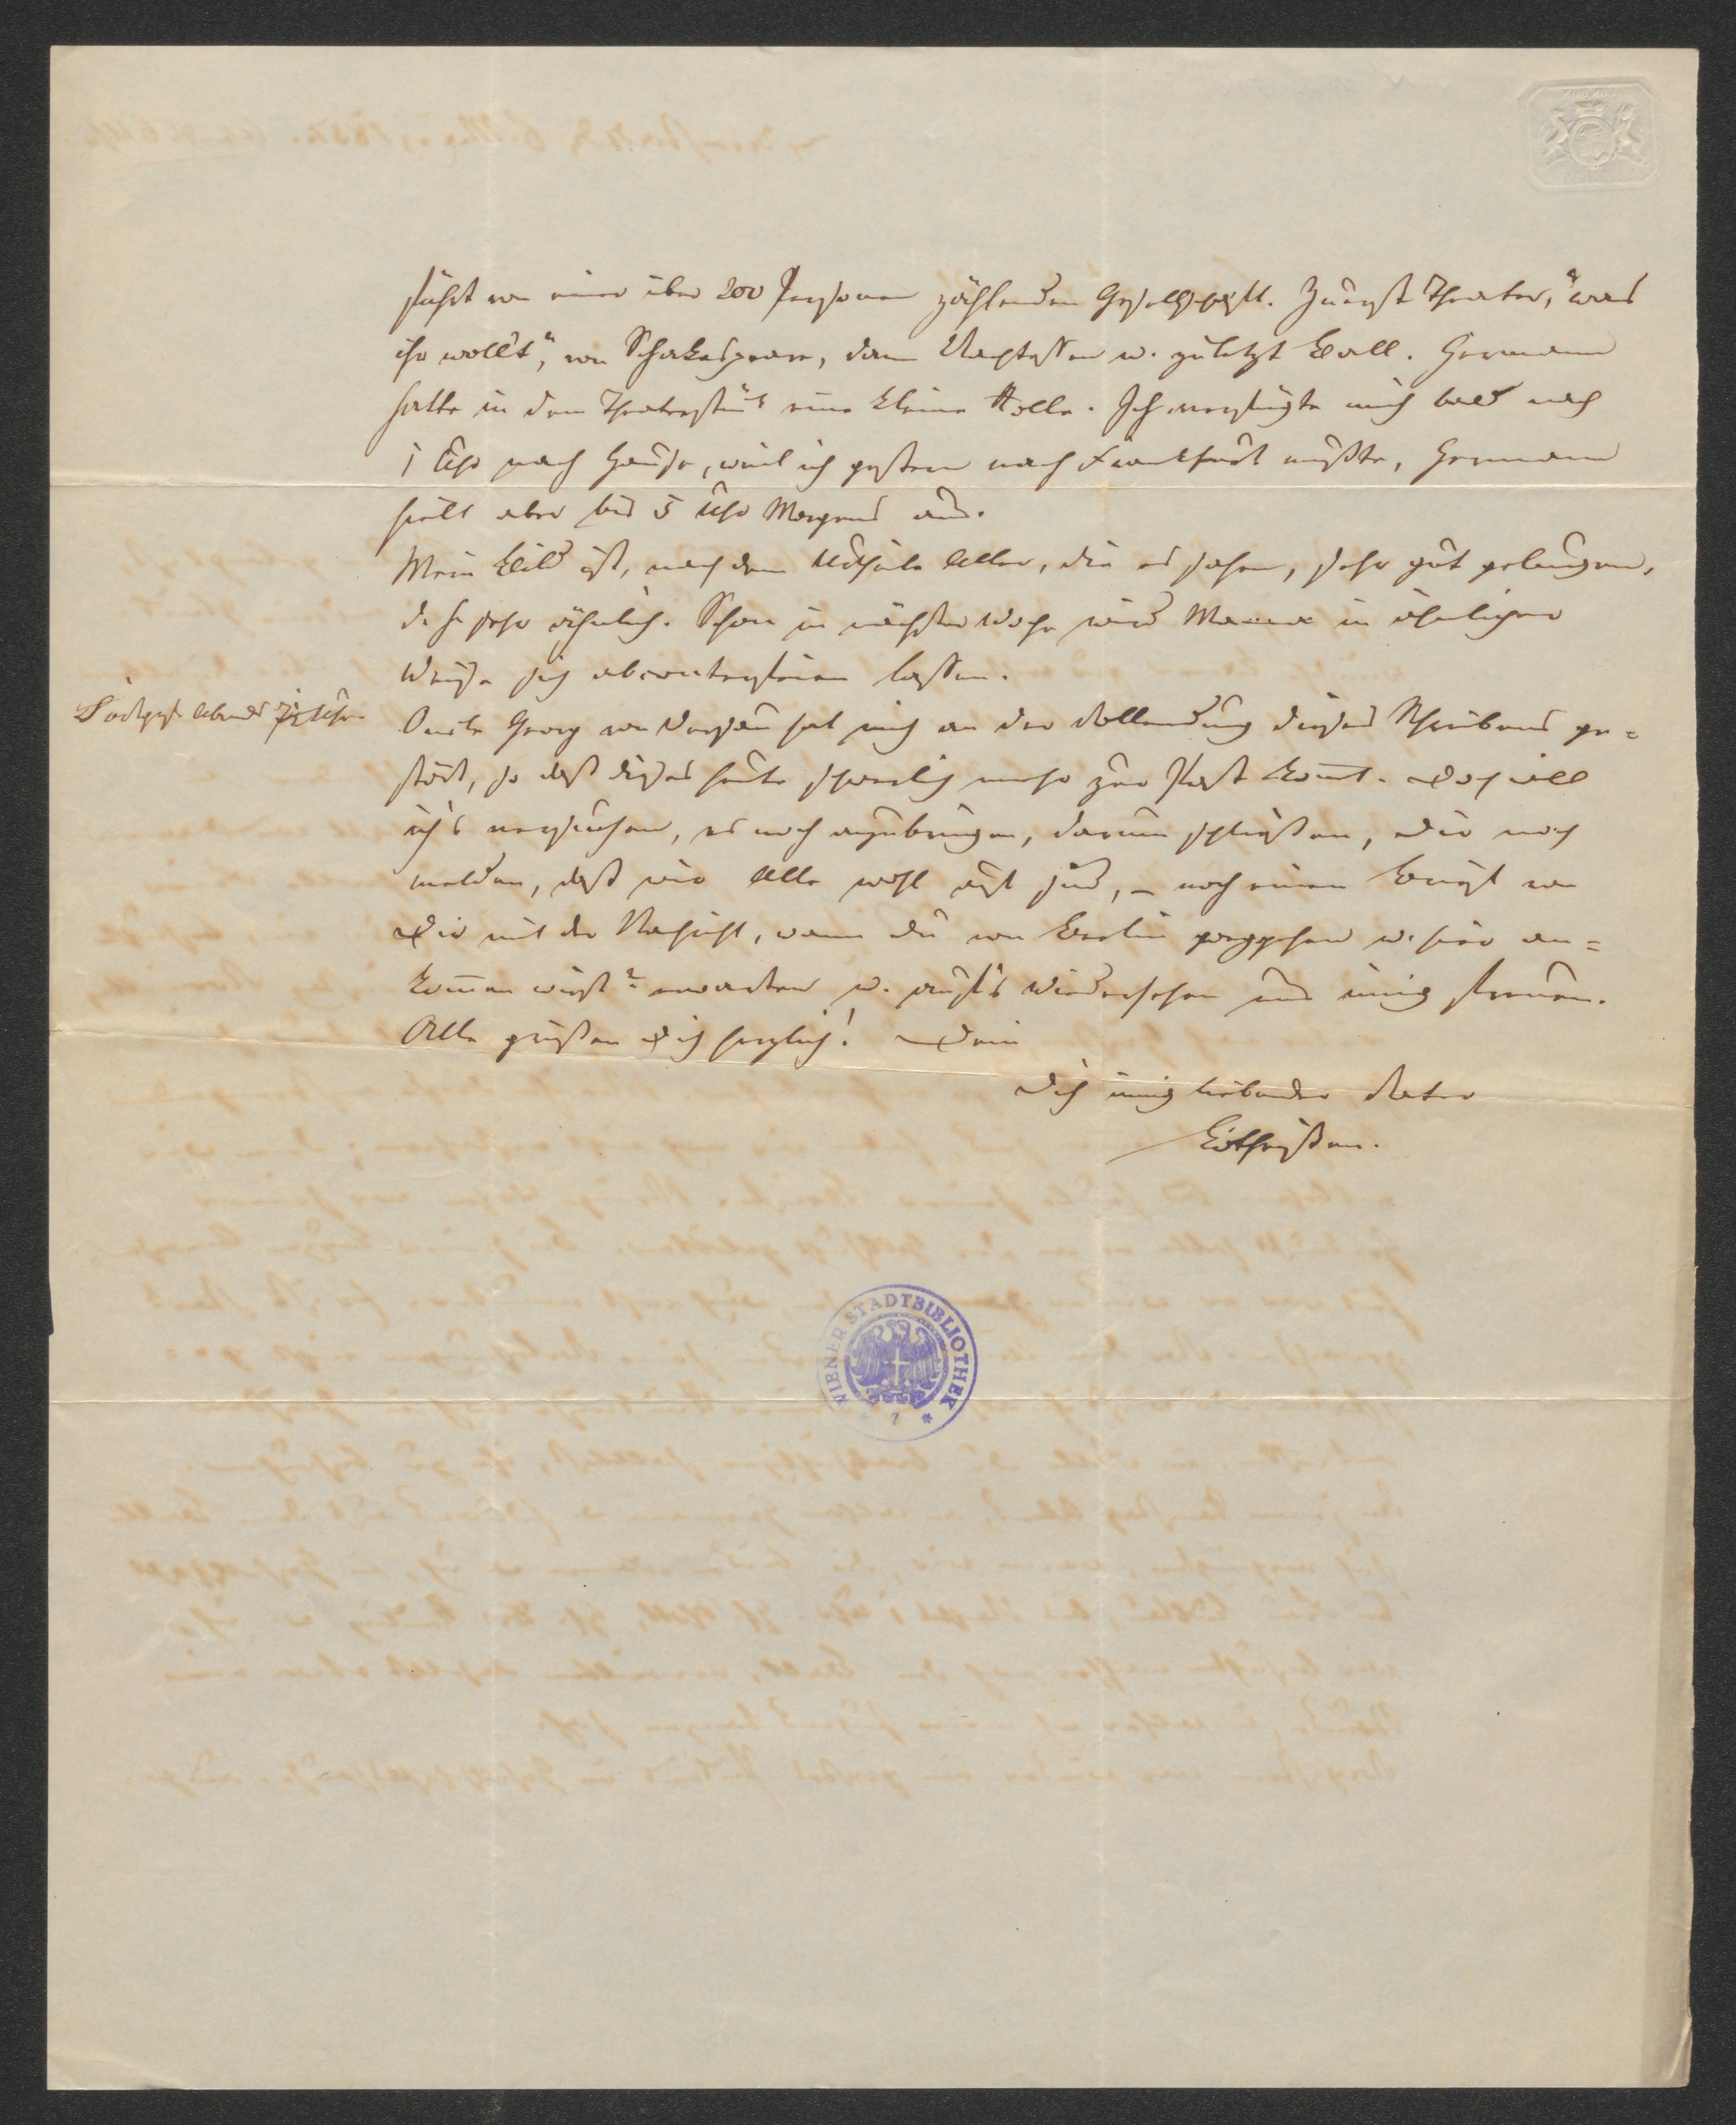 führt von einer über 200 Personen zählenden Gesellschaft. Zuerst Theater, "was
ihr wollt", von Schakespeare, dann Nachtessen u. zuletzt Ball. Hermann
hatte in dem Theaterstück eine kleine Rolle. Ich verfügte mich bald nach
1 Uhr nach Hause, weil ich gestern nach Frankfurt mußte, Hermann
hielt aber bis 5 Uhr Morgens aus.
Mein Bild ist, nach dem Urtheile Aller, die es sahen, sehr gut gelungen,
d. h. sehr ähnlich. Schon in nächster Woche wird Mama in ähnlicher
Weise sich abconterfeien lassen.
Abends Uhr
Onkle Georg von hat mich an der Vollendung dieses Schreibens ge=
stört, so daß dieses heute schwerlich mehr zur Post kommt. Doch will
ich's versuchen, es noch anzubringen, darum schließen, Dir noch
melden, daß wir Alle wohl auf sind, – noch einen Brief von
Dir mit der Nachricht, wann Du von Berlin weggehen u. hier an=
kommen wirst? erwarten u. auf's Wiedersehen uns innig freuen.
Alle grüßen Dich herzlich! Dein
Dich innig liebender Vater
WIENER STADTBIBLIOTHEK
* 7 *